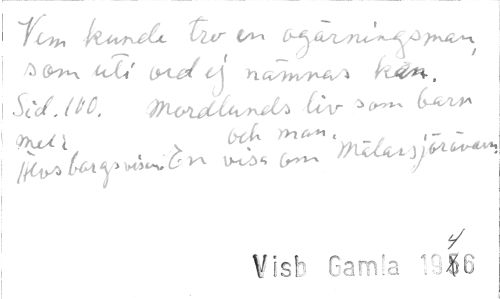 Vem kunde tro en ogärningsman,
som uti ord ej nämnas kan.
Sid. 100. Mordlunds liv som barn
och man.
Mel:
Älvsborgsvisan. En visa om Mälarsjörövaren.
Visb Gamla 1946